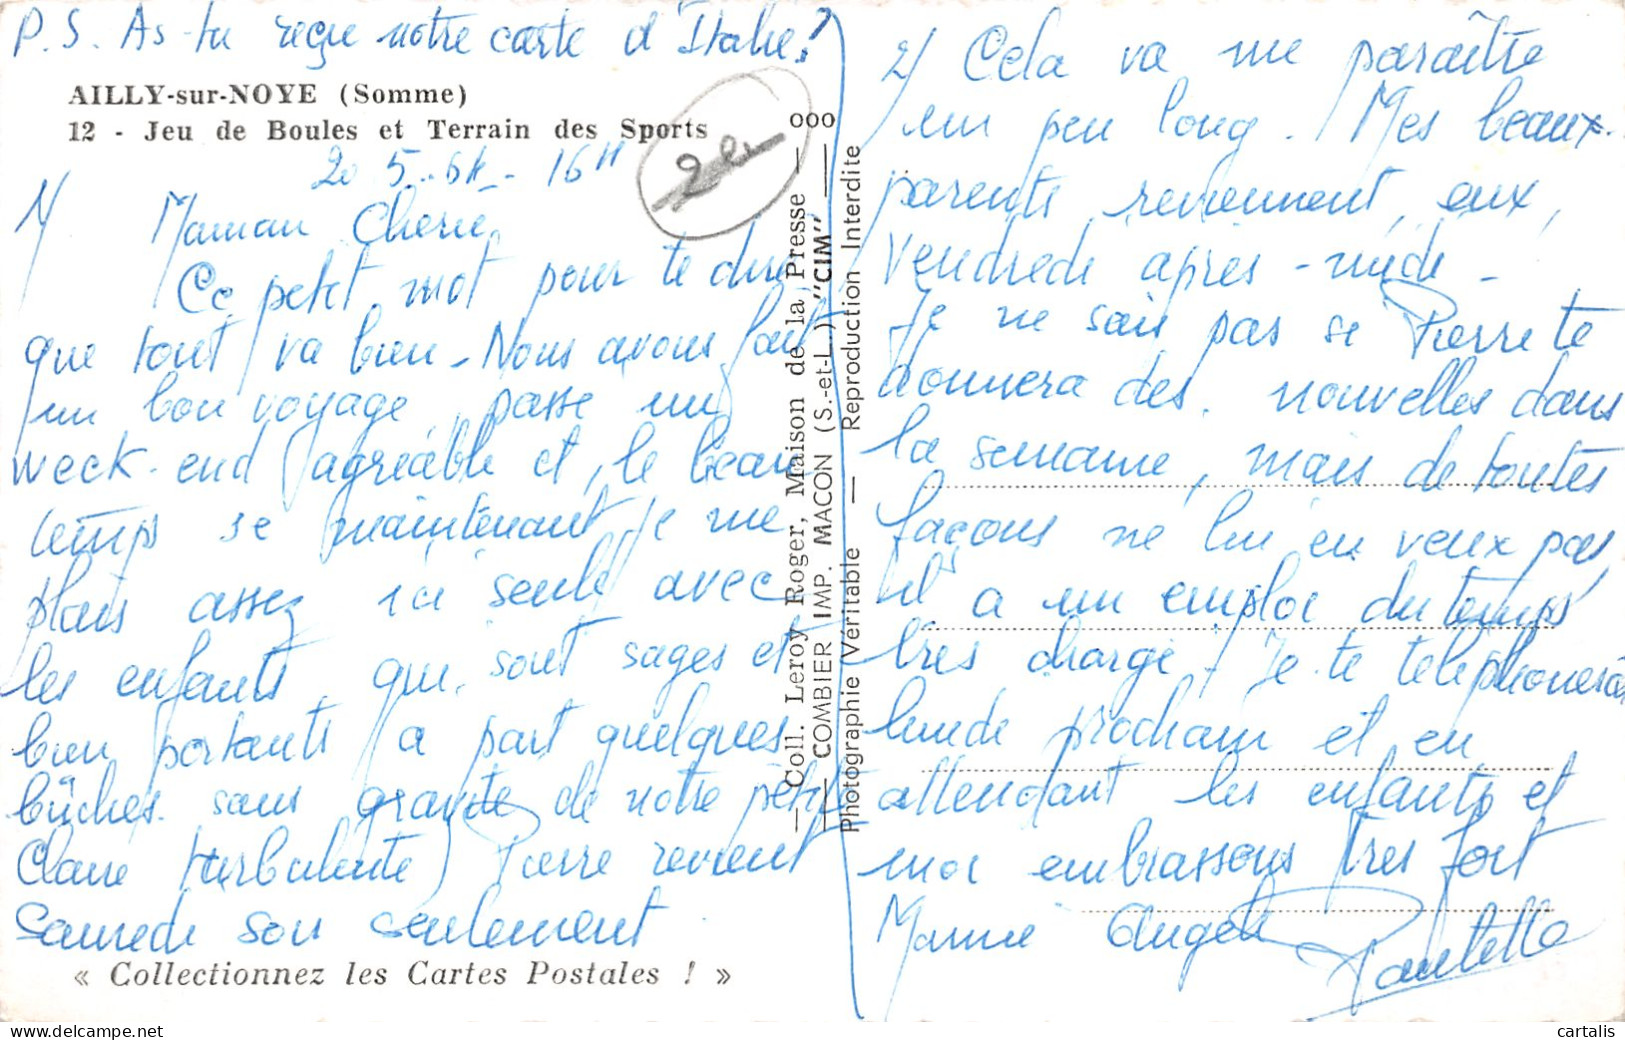 P.S. As-tu reçue notre carte d'Italie?
AILLY-sur-NOYE (Somme)
12 - Jeu de Boules et Terrain des Sports
20 5.64 - 16H
1/ Maman Cherie,
Ce petit mot pour te dire
que tout va bien - Nous avons fait
un bon voyage, passé un
week-end agréable et, le beau
temps se maintenant je me
plais assez ici seule avec
les enfants, qui sont sages et
bien portants (à part quelques
bûches sans gravité de notre petite
Claire turbulente) Pierre revient
Samedi soir seulement
« Collectionnez les Cartes Postales ! »
Coll. Leroy Roger, Maison de la Presse — 000
COMBIER IMP. MACON (S.-et-L.) "CIM"
Photographie Véritable — Reproduction Interdite
2/ Cela va me paraître
un peu long. Mes beaux-
parents reviennent, eux,
Vendredi après-midi -
Je ne sais pas si Pierre te
donnera des nouvelles dans
la semaine, mais de toutes
façons ne lui en veux pas,
il a un emploi du temps
très chargé. Je te téléphonerai
lundi prochain et en
attendant les enfants et
moi embrassons très fort
Mamie Angèle
Paulette
cartalis
www.delcampe.net